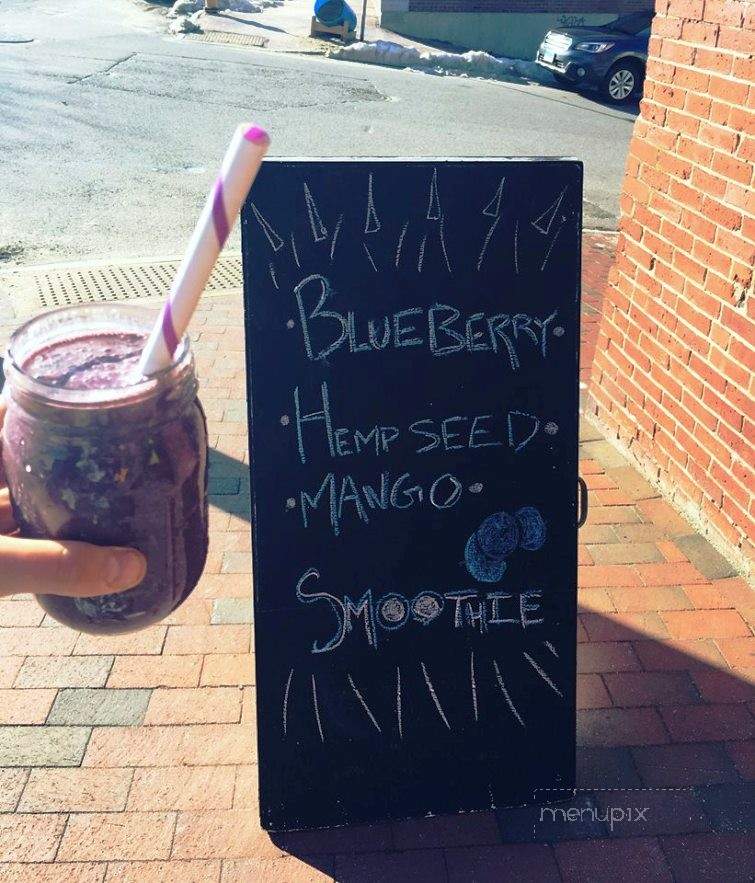 BLUEBERRY
HEMP SEED
MANGO
SMOOTHIE
menupix